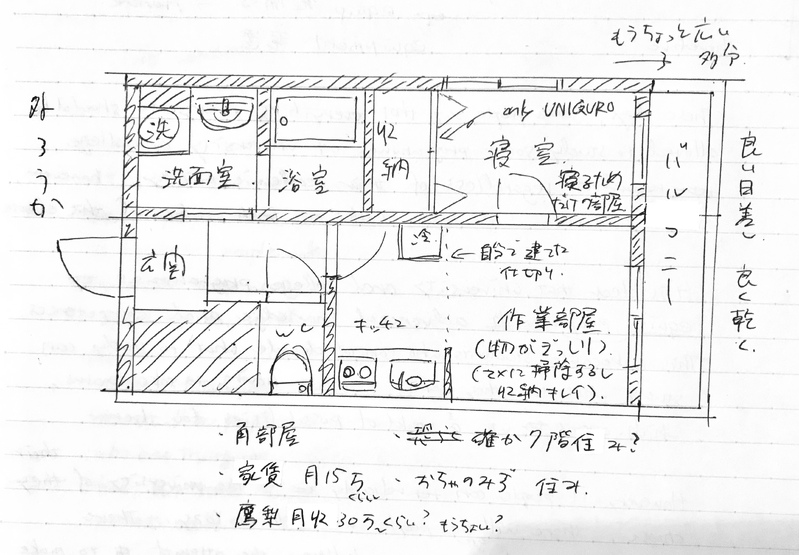 もうちょっと広い
多分
ろうか
洗
洗面室
浴室
収
納
only UNIQURO
寝室
寝るため
だけの部屋
バルコニー
良い日差し 良く乾く
玄関
冷
←自分で建てた
仕切り
WC
キッチン
作業部屋
(物がぎっしり)
掃除するし
収納キレイ)
・角部屋
・確か7階住み?
・家賃 月15万くらい
・おちゃのみず 住み
月収30万くらい? もうちょい?